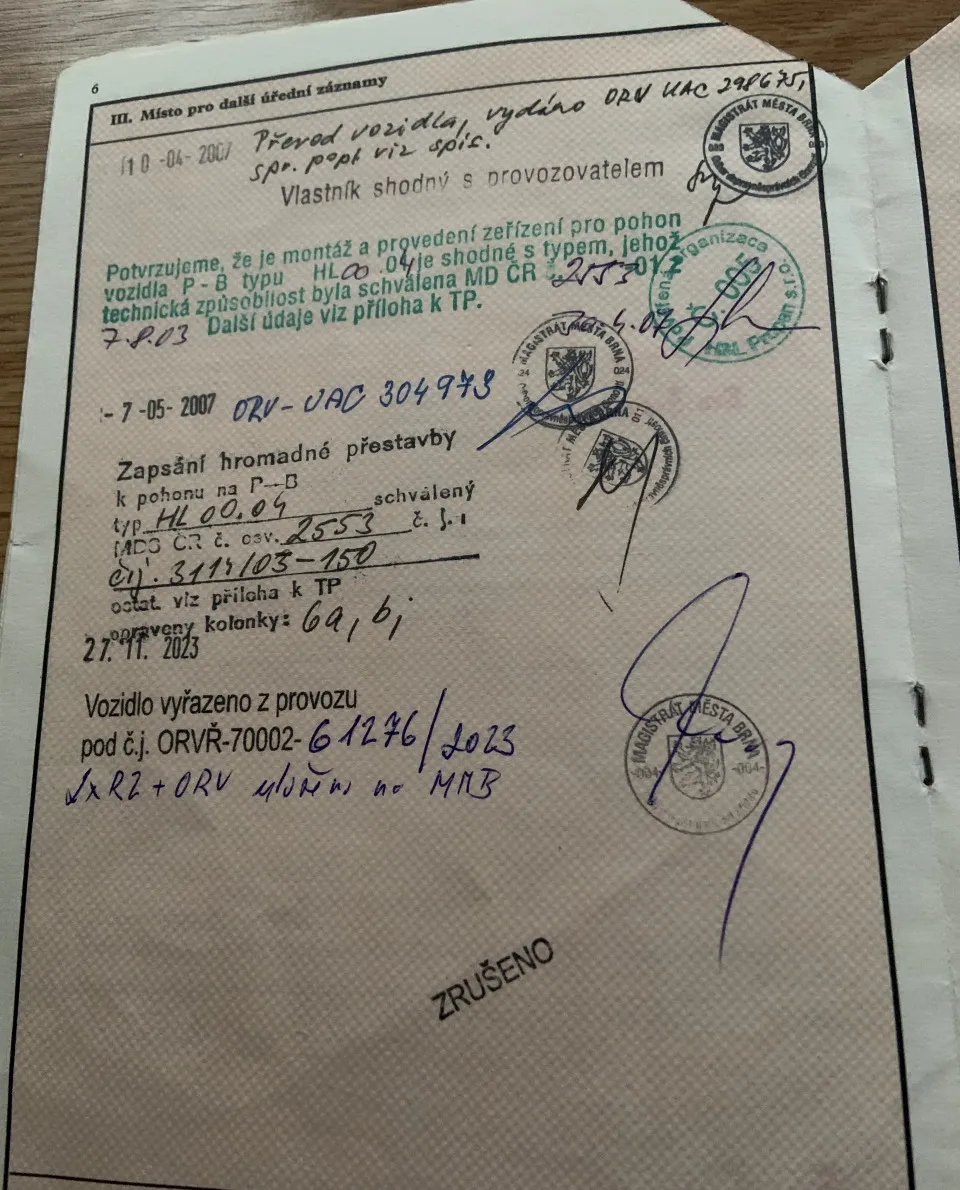 6
III. Místo pro další úřední záznamy
10 -04- 2007 Převod vozidla, vydáno ORV UAC 298675,
spr. popl viz spis.
Vlastník shodný s provozovatelem
MAGISTRÁT MĚSTA BRNA
Potvrzujeme, že je montáž a provedení zeřízení pro pohon
vozidla P - B typu HL 00 .04 je shodné s typem, jehož
technická způsobilost byla schválena MD ČR 2553
7.8.03 Další údaje viz příloha k TP.
organizace
č. 005
MAGISTRÁT MĚSTA BRNA
024 024
- 7 -05- 2007 ORV - UAC 304973
Zapsání hromadné přestavby
k pohonu na P—B
typ HL 00.04 schválený
MDS ČR č. osv. 2553 č. j.
čj. 3114/03-150
ostat. viz příloha k TP
opraveny kolonky: 6a, b,
27. 11. 2023
Vozidlo vyřazeno z provozu
pod č.j. ORVŘ-70002-61276/2023
2x RZ + ORV uloženo na MMB
MAGISTRÁT MĚSTA BRNA
-004- -004-
ZRUŠENO